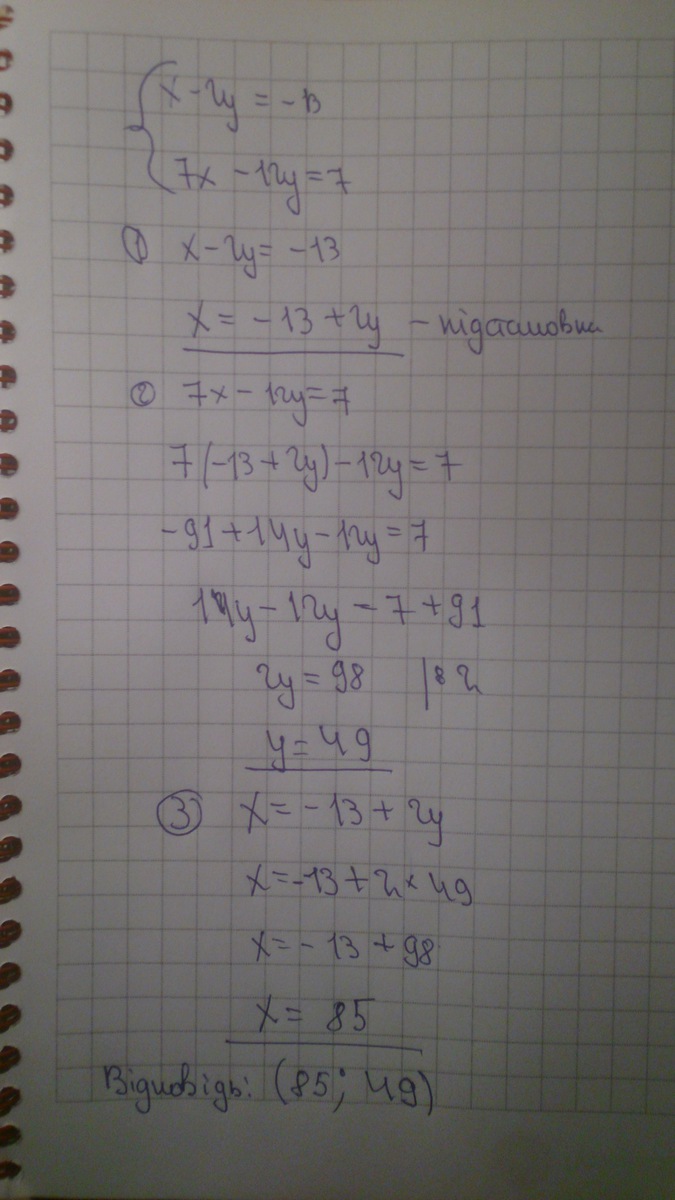 x - 2y = -13
7x - 12y = 7
① x - 2y = -13
x = -13 + 2y - підстановка
② 7x - 12y = 7
7(-13 + 2y) - 12y = 7
-91 + 14y - 12y = 7
14y - 12y = 7 + 91
2y = 98 |: 2
y = 49
③ x = -13 + 2y
x = -13 + 2 × 49
x = -13 + 98
x = 85
Відповідь: (85; 49)